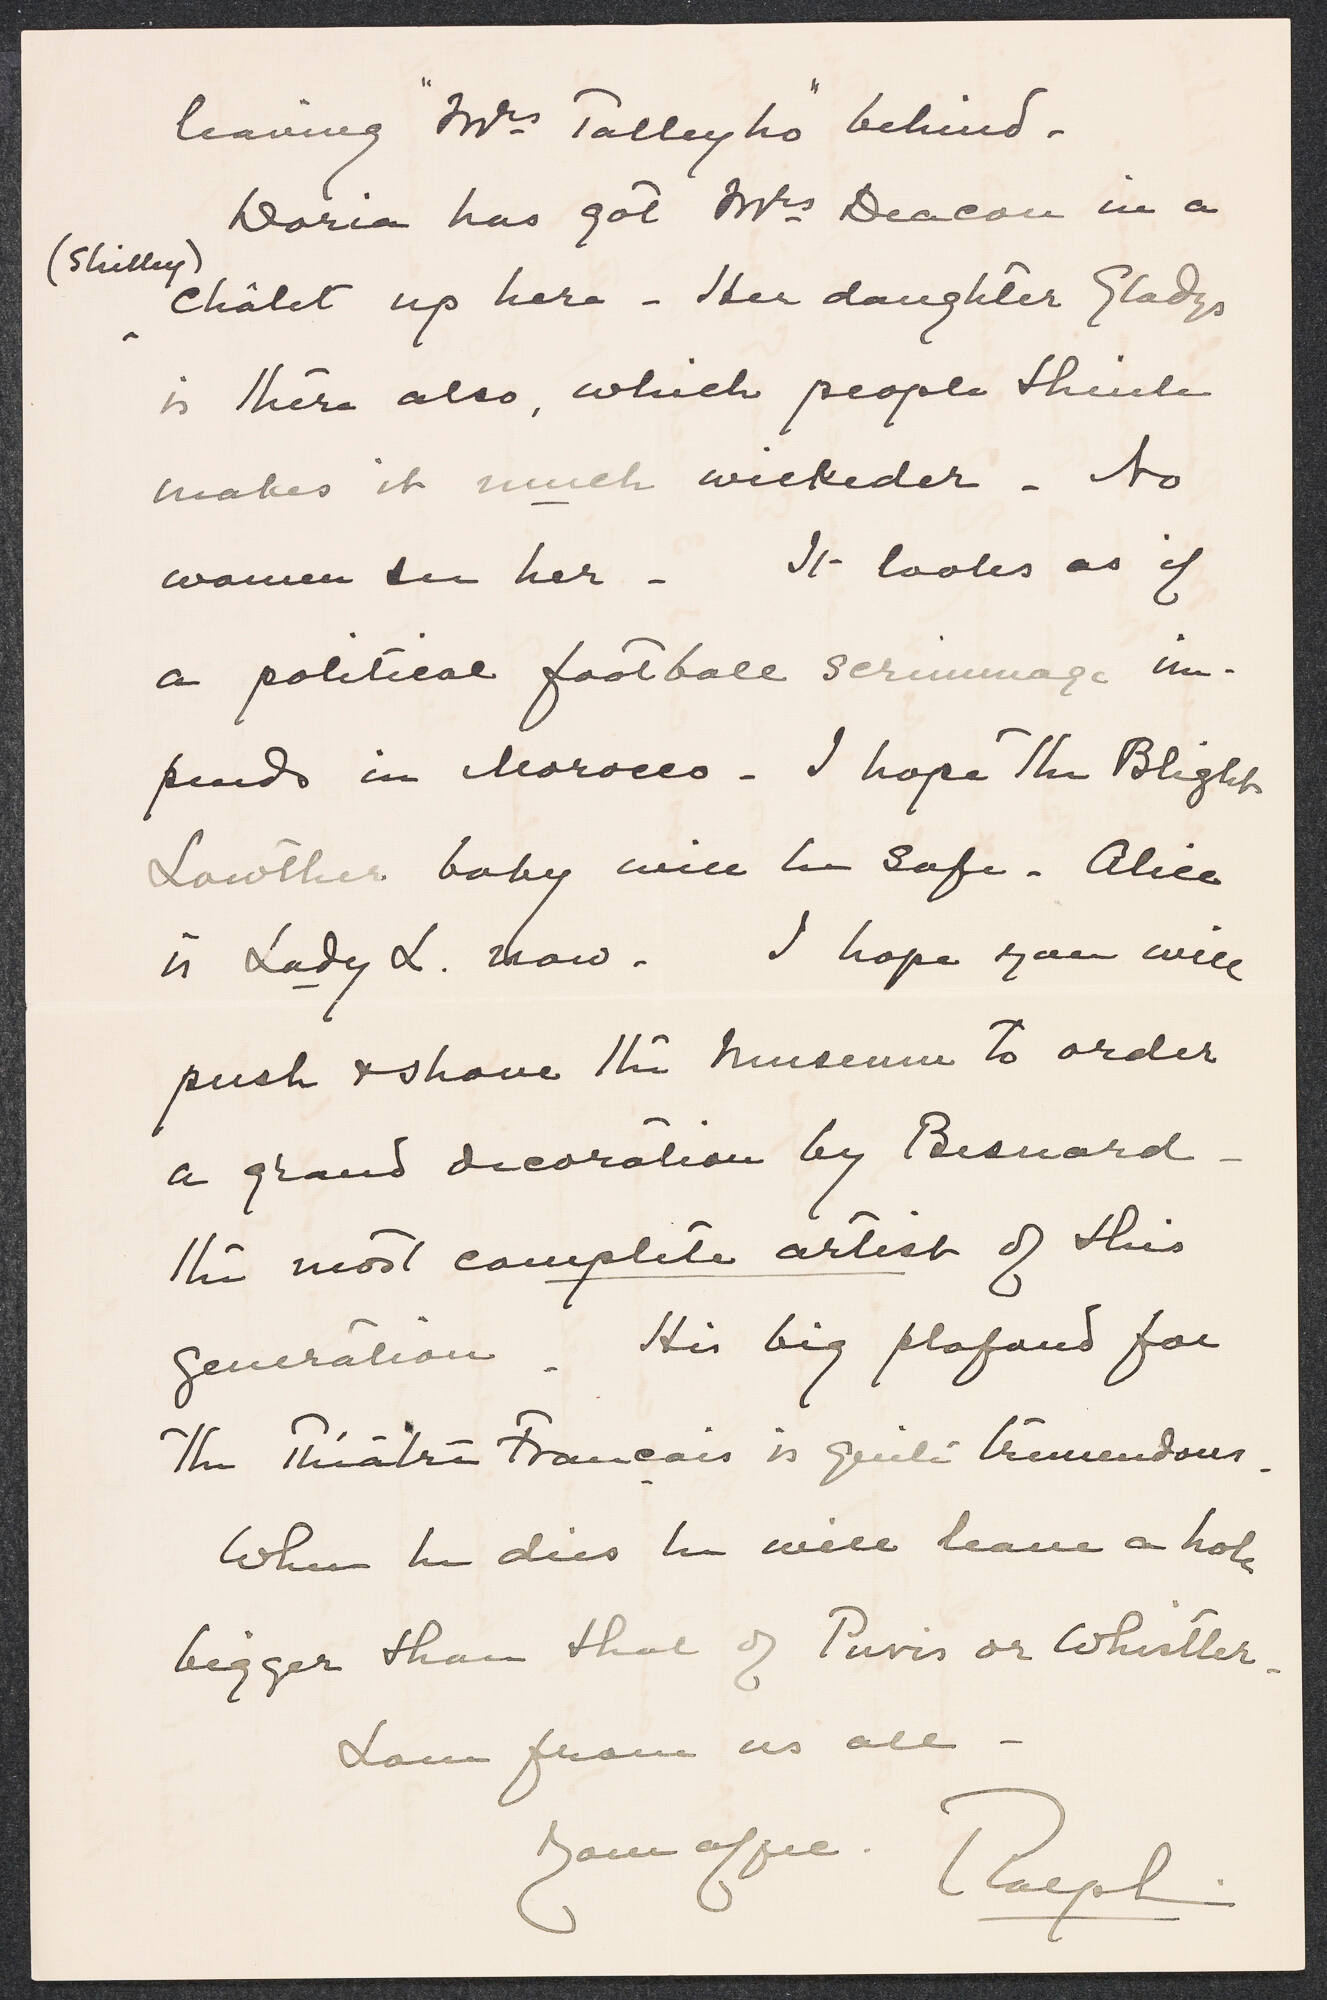 leaving "Mrs Talleyho" behind -
Doria has got Mrs Deacon in a
(Shilley)
châlet up here - Her daughter Gladys
is there also, which people think
makes it much wickeder - No
women see her - It looks as if
a political football scrimmage im-
pends in Morocco - I hope the Blight
Lowther baby will be safe - Alice
is Lady L. now - I hope you will
push & shove the Museum to order
a grand decoration by Besnard -
the most complete artist of this
generation - His big plafond for
the Théâtre Français is quite tremendous -
When he dies he will leave a hole
bigger than that of Puvis or Whistler -
Love from us all -
Your affte. Ralph